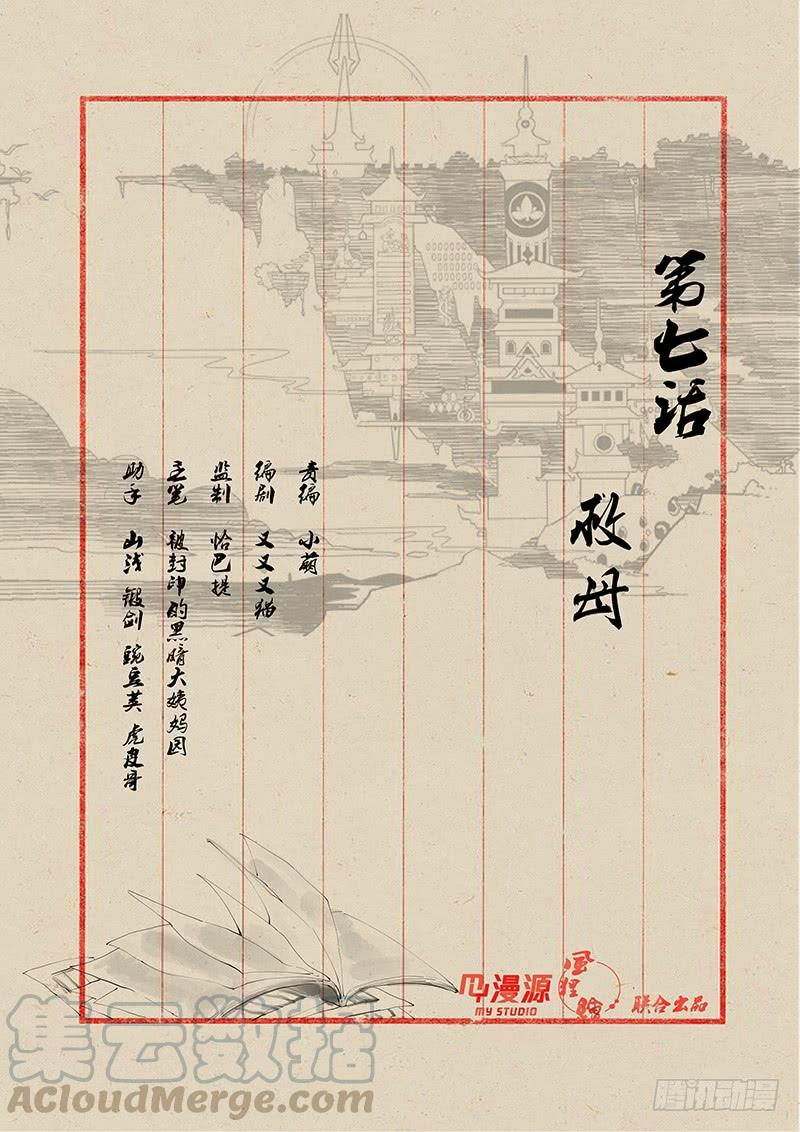 第七话
救母
责编 小萌
编剧 又又又猫
监制 恰巴提
主笔 被封印的黑暗大姨妈园
助手 山浅 锻剑 豌豆荚 虎皮哥
漫源
MY STUDIO
联合出品
集云数据
ACloudMerge.com
腾讯动漫